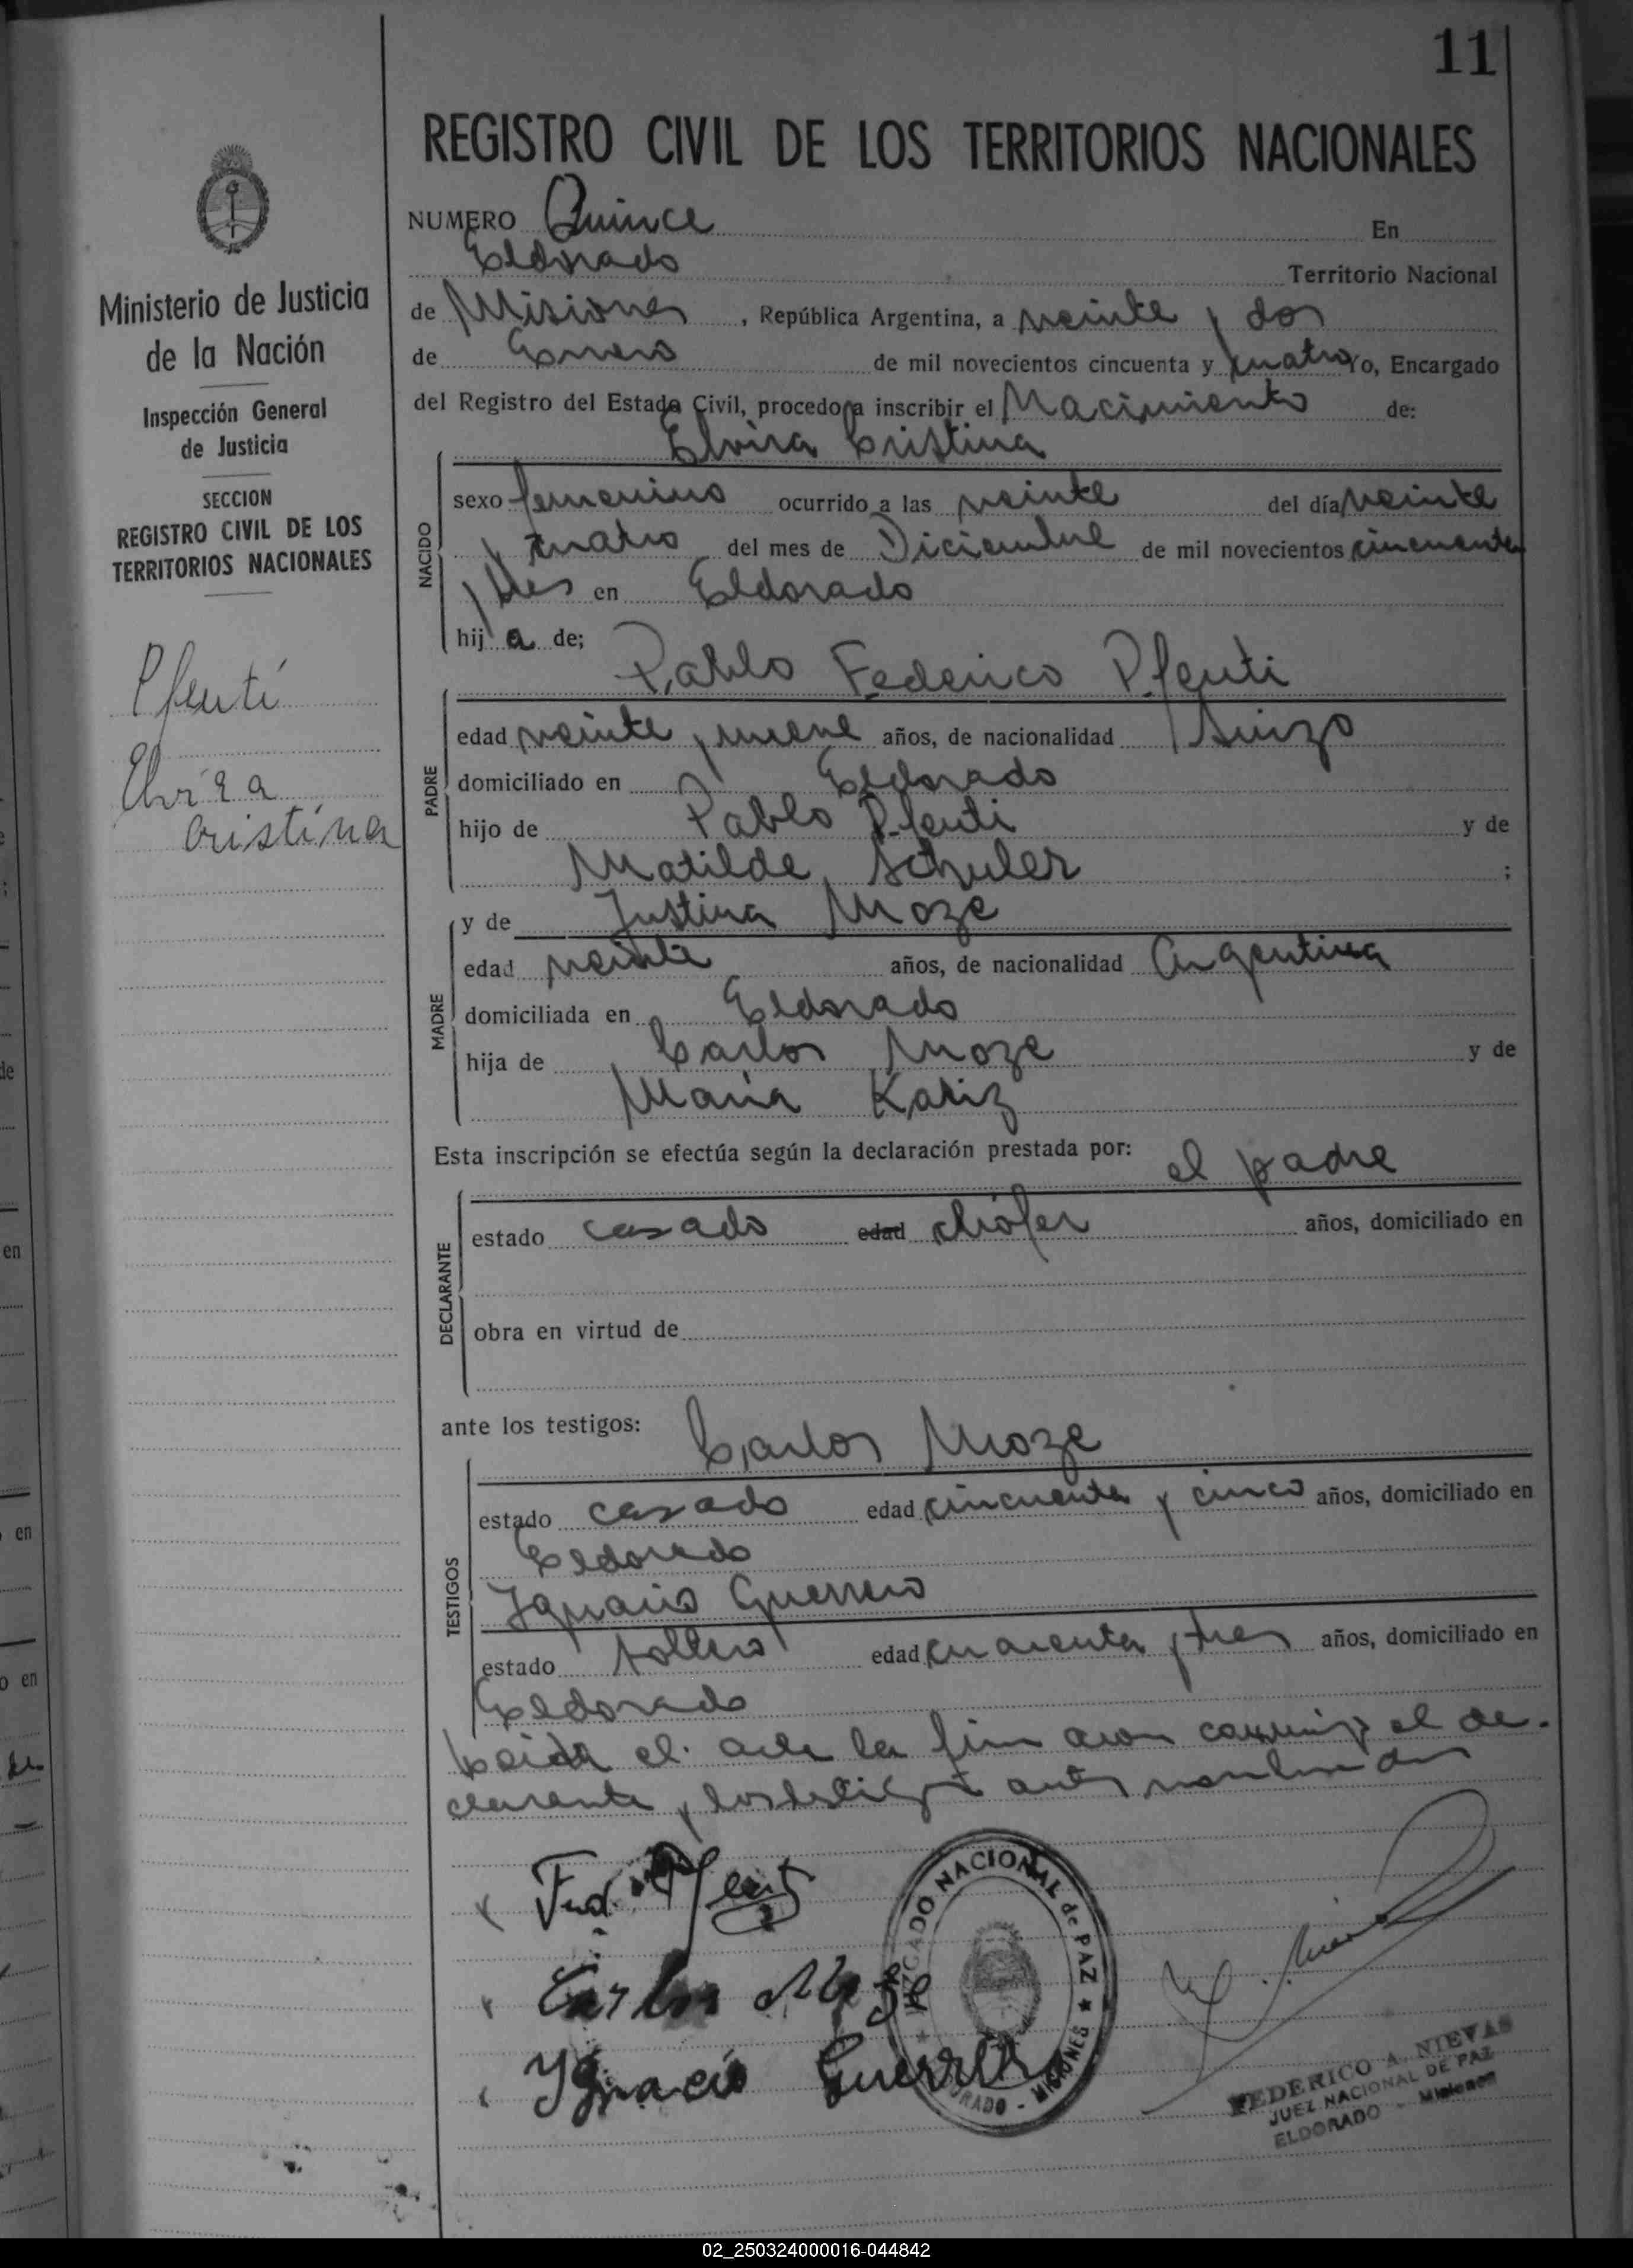 11
REGISTRO CIVIL DE LOS TERRITORIOS NACIONALES
Ministerio de Justicia
de la Nación
Inspección General
de Justicia
SECCION
REGISTRO CIVIL DE LOS
TERRITORIOS NACIONALES
Pfenti
Elvira
Cristina
NUMERO Quince En
Eldorado Territorio Nacional
de Misiones, República Argentina, a veinte y dos
de Enero de mil novecientos cincuenta y cuatro Yo, Encargado
del Registro del Estado Civil, procedo a inscribir el Nacimiento de:
Elvira Cristina
NACIDO
sexo femenino ocurrido a las veinte del día veinte
y cuatro del mes de Diciembre de mil novecientos cincuenta
y tres en Eldorado
hija de;
Pablo Federico Pfenti
PADRE
edad veinte y nueve años, de nacionalidad Suizo
domiciliado en Eldorado
hijo de Pablo Pfenti y de
Matilde Schuler ;
MADRE
y de Justina Moze
edad veinte años, de nacionalidad Argentina
domiciliada en Eldorado
hija de Carlos Moze y de
Maria Kariz
Esta inscripción se efectúa según la declaración prestada por: el padre
DECLARANTE
estado casado edad chófer años, domiciliado en
obra en virtud de
ante los testigos: Carlos Moze
TESTIGOS
estado casado edad cincuenta y cinco años, domiciliado en
Eldorado
Ignacio Guerrero
estado soltero edad cuarenta y tres años, domiciliado en
Eldorado
Leida el acta la firmaron conmigo el de-
clarante y los testigos antes nombrados
Fed. Pfenti
Carlos Moze
Ignacio Guerrero
JUZGADO NACIONAL de PAZ ★ ELDORADO - MISIONES ★
FEDERICO A. NIEVAS
JUEZ NACIONAL DE PAZ
ELDORADO - Misiones
02_250324000016-044842